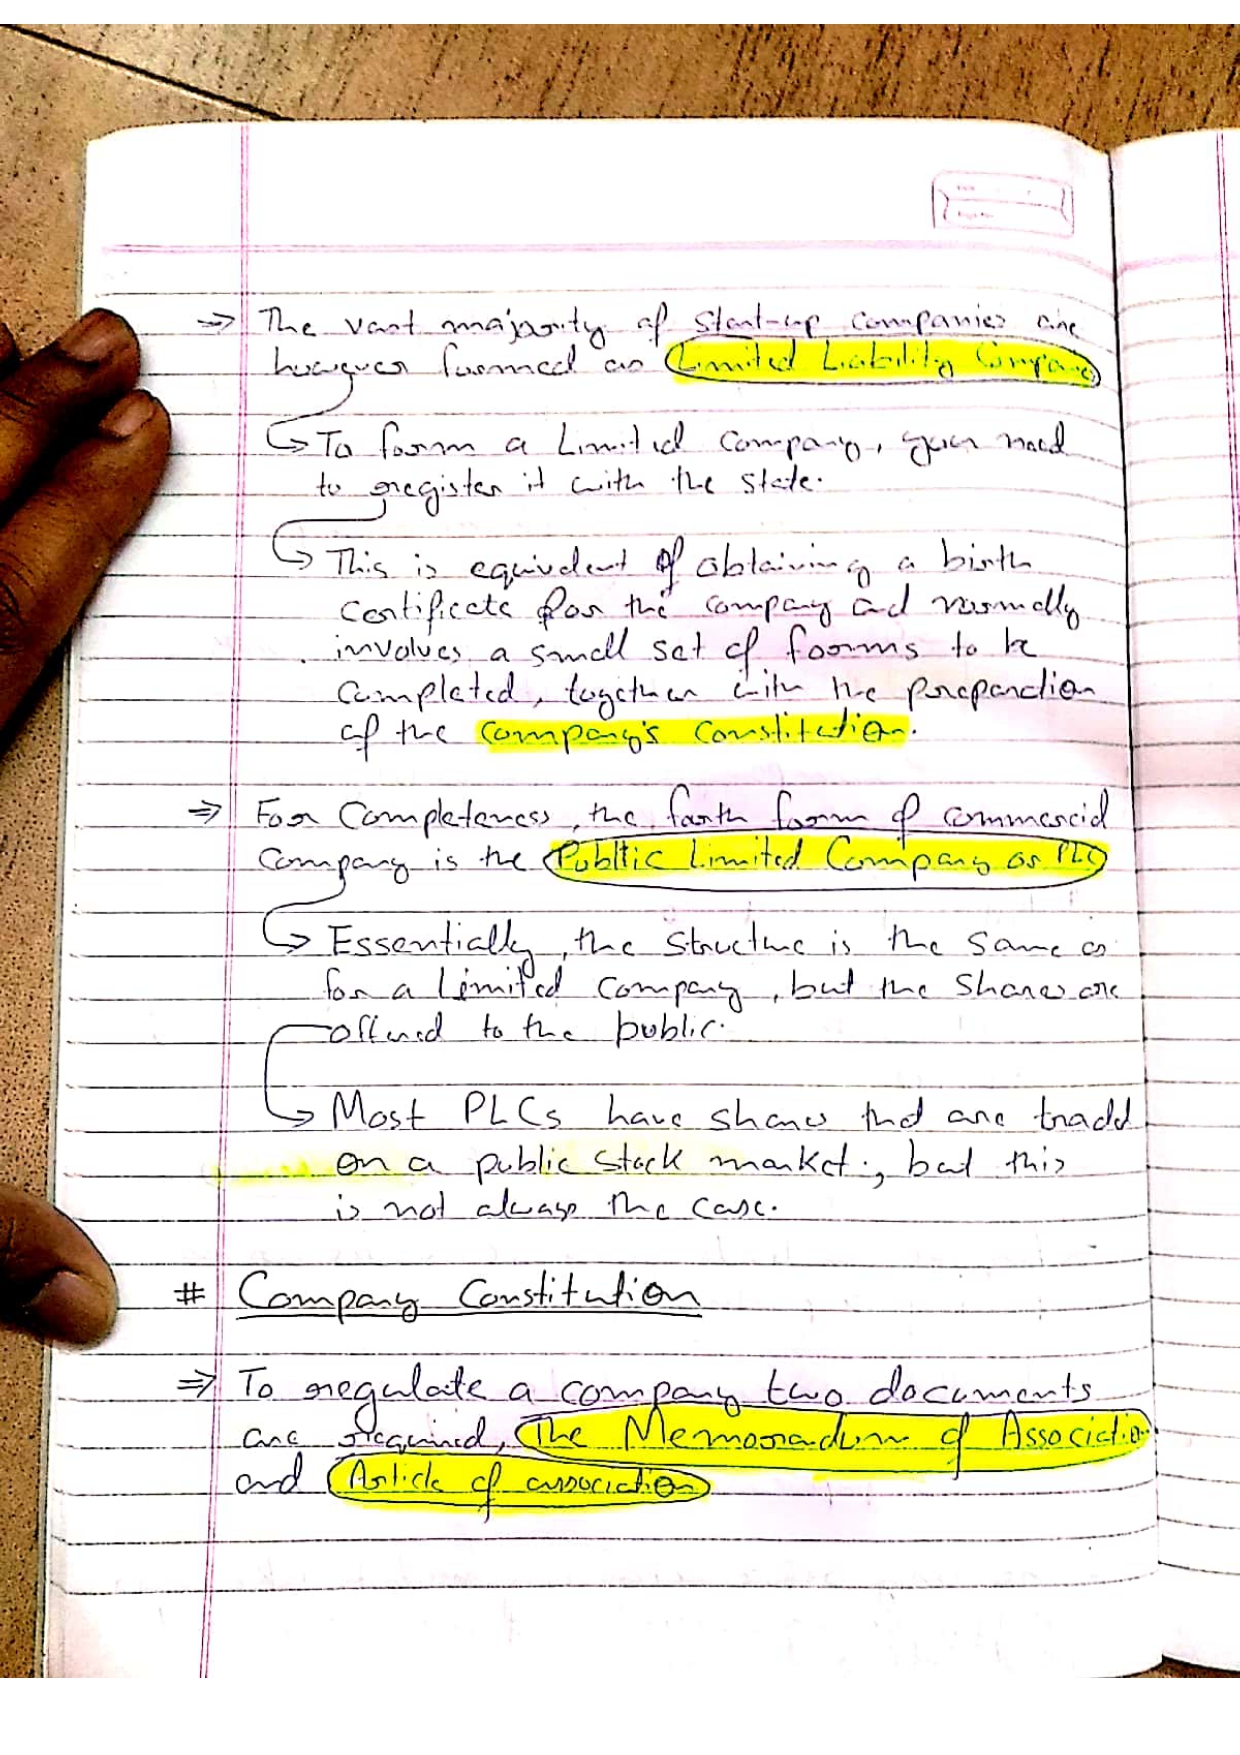 ⇒ The vast majority of start-up companies are
however formed as Limited Liability Company
↳ To form a Limited Company, you need
to register it with the state.
↳ This is equivalent of obtaining a birth
certificate for the company and normally
involves a small set of forms to be
completed, together with the preparation
of the company's constitution.
⇒ For Completeness, the forth form of commercial
company is the Public Limited Company or PLC
↳ Essentially, the structure is the same as
for a Limited Company, but the shares are
offered to the public.
↳ Most PLCs have shares that are traded
on a public stock market, but this
is not always the case.
# Company Constitution
⇒ To regulate a company two documents
are required, The Memorandum of Association
and Article of association